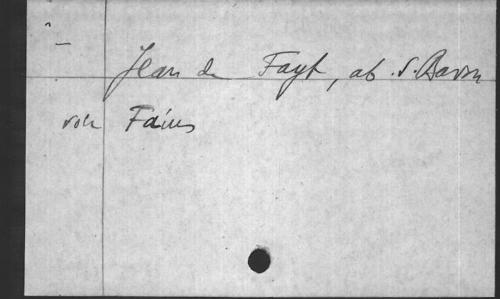 Jean de Fayt, ab. S. Bavon
von Fains